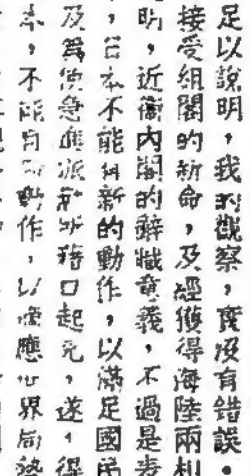 足以說明，我的觀察，實沒有錯誤。
接受組閣的新命，及經獲得海陸兩
明，近衛內閣的辭職意義，不過是表
，日本不能有新的動作，以滿足國民
及為使急進派藉口起見，遂，得
本，不能有動作，以適應世界局勢